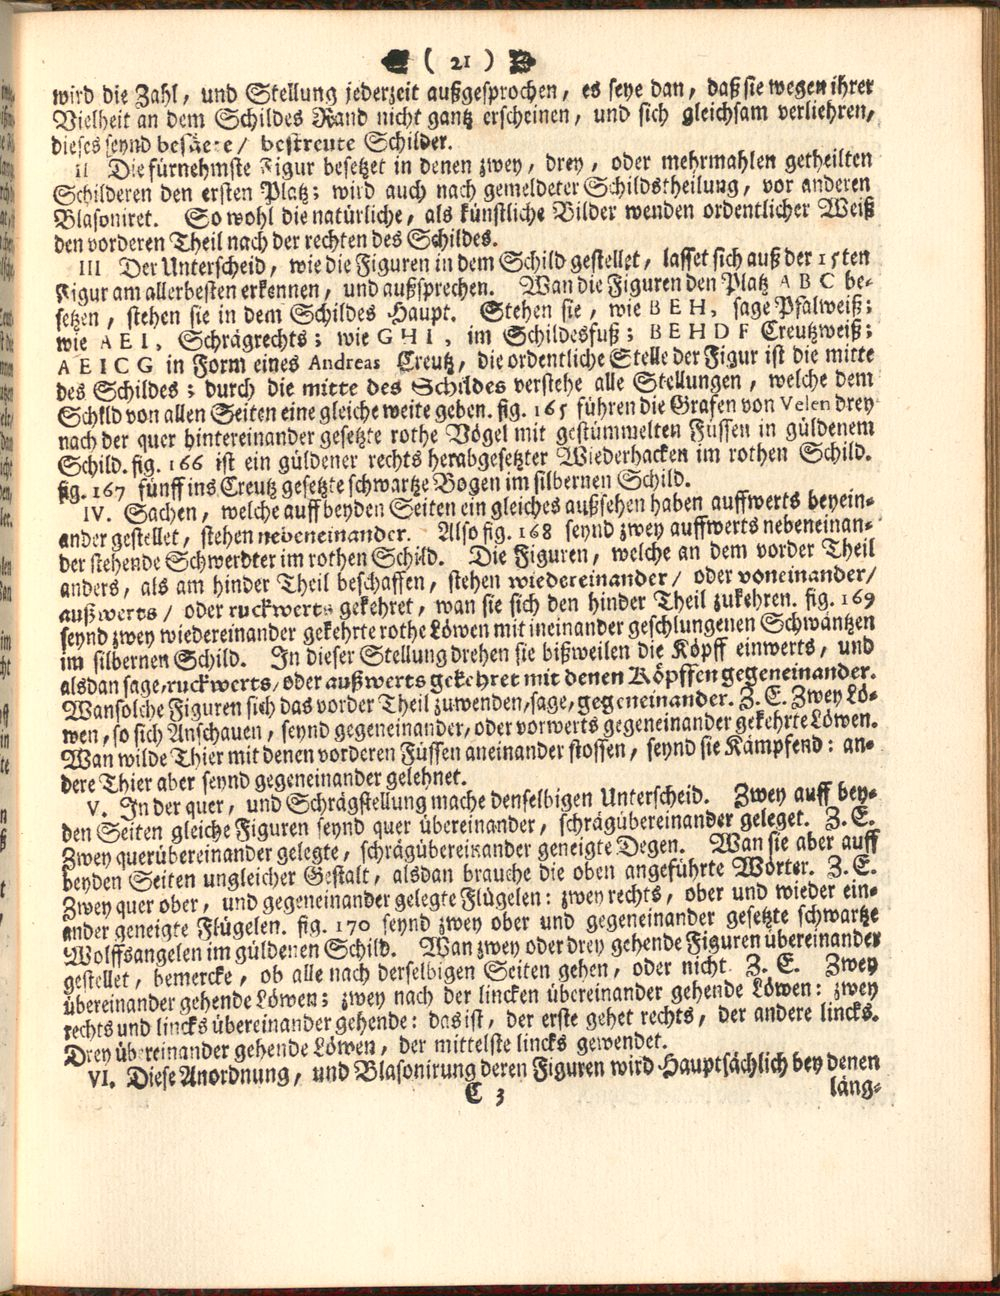 ( 21 )
wird die Zahl, und Stellung jederzeit außgesprochen, es seye dan, daß sie wegen ihrer
Vielheit an dem Schildes Rand nicht gantz erscheinen, und sich gleichsam verliehren,
dieses seynd besäete/ bestreute Schilder.
II Die fürnehmste Figur besetzet in denen zwey, drey, oder mehrmahlen getheilten
Schilderen den ersten Platz; wird auch nach gemeldeter Schildstheilung, vor anderen
Blasoniret. So wohl die natürliche, als künstliche Bilder wenden ordentlicher Weiß
den vorderen Theil nach der rechten des Schildes.
III Der Unterscheid, wie die Figuren in dem Schild gestellet, lasset sich auß der 15ten
Figur am allerbesten erkennen, und außsprechen. Wan die Figuren den Platz A B C be-
setzen, stehen sie in dem Schildes Haupt. Stehen sie, wie B E H, sage Pfalweiß;
wie A E I, Schrägrechts; wie G H I, im Schildesfuß; B E H D F Creutzweiß;
A E I C G in Form eines Andreas Creutz, die ordentliche Stelle der Figur ist die mitte
des Schildes; durch die mitte des Schildes verstehe alle Stellungen, welche dem
Schild von allen Seiten eine gleiche weite geben. fig. 165 führen die Grafen von Velen drey
nach der quer hintereinander gesetzte rothe Vögel mit gestümmelten Füssen in güldenem
Schild. fig. 166 ist ein güldener rechts herabgesetzter Wiederhacken im rothen Schild.
fig. 167 fünff ins Creutz gesetzte schwartze Bogen im silbernen Schild.
IV. Sachen, welche auff beyden Seiten ein gleiches außsehen haben auffwerts beyein-
ander gestellet, stehen nebeneinander. Also fig. 168 seynd zwey auffwerts nebeneinan-
der stehende Schwerdter im rothen Schild. Die Figuren, welche an dem vorder Theil
anders, als am hinder Theil beschaffen, stehen wiedereinander/ oder voneinander/
außwerts/ oder ruckwerts gekehret, wan sie sich den hinder Theil zukehren. fig. 169
seynd zwey wiedereinander gekehrte rothe Löwen mit ineinander geschlungenen Schwäntzen
im silbernen Schild. In dieser Stellung drehen sie bißweilen die Köpff einwerts, und
alsdan sage, ruckwerts/ oder außwerts gekehret mit denen Köpffen gegeneinander.
Wan solche Figuren sich das vorder Theil zuwenden, sage, gegeneinander. Z. E. Zwey Lö-
wen, so sich Anschauen, seynd gegeneinander, oder vorwerts gegeneinander gekehrte Löwen.
Wan wilde Thier mit denen vorderen Füssen aneinander stossen, seynd sie Kämpfend: an-
dere Thier aber seynd gegeneinander gelehnet.
V. In der quer, und Schrägstellung mache denselbigen Unterscheid. Zwey auff bey-
den Seiten gleiche Figuren seynd quer übereinander, schrägübereinander geleget. Z. E.
Zwey querübereinander gelegte, schrägübereinander geneigte Degen. Wan sie aber auff
beyden Seiten ungleicher Gestalt, alsdan brauche die oben angeführte Wörter. Z. E.
Zwey quer ober, und gegeneinander gelegte Flügelen: zwey rechts, ober und wieder ein-
ander geneigte Flügelen. fig. 170 seynd zwey ober und gegeneinander gesetzte schwartze
Wolffsangelen im güldenen Schild. Wan zwey oder drey gehende Figuren übereinander
gestellet, bemercke, ob alle nach derselbigen Seiten gehen, oder nicht. Z. E. Zwey
übereinander gehende Löwen; zwey nach der lincken übereinander gehende Löwen: zwey
rechts und lincks übereinander gehende: das ist, der erste gehet rechts, der andere lincks.
Drey übereinander gehende Löwen, der mittelste lincks gewendet.
VI. Diese Anordnung, und Blasonirung deren Figuren wird Hauptsächlich bey denen
C 3 läng-